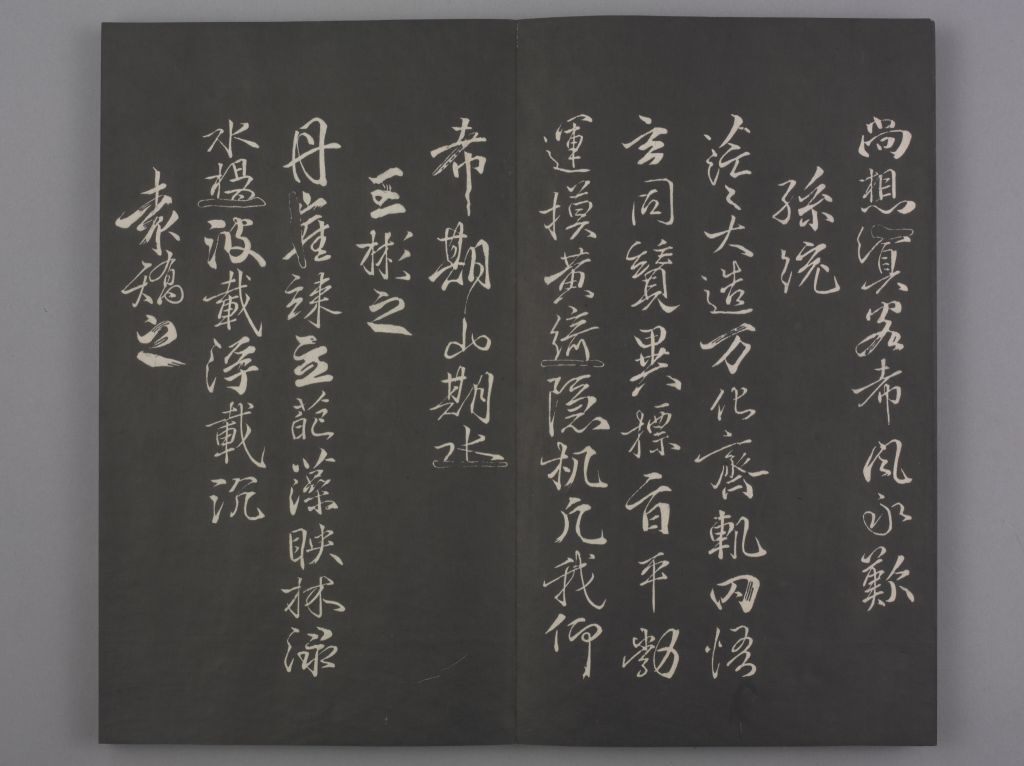 尚想客希風永歎
孫統
茫〻大造万化齊軌罔悟
玄同賛異摽旨平勃
運摸黃綺隱机凡我仰
希期山期水
王彬之
丹崖竦立葩藻映林淥
水揚波載浮載沉
袁矯之